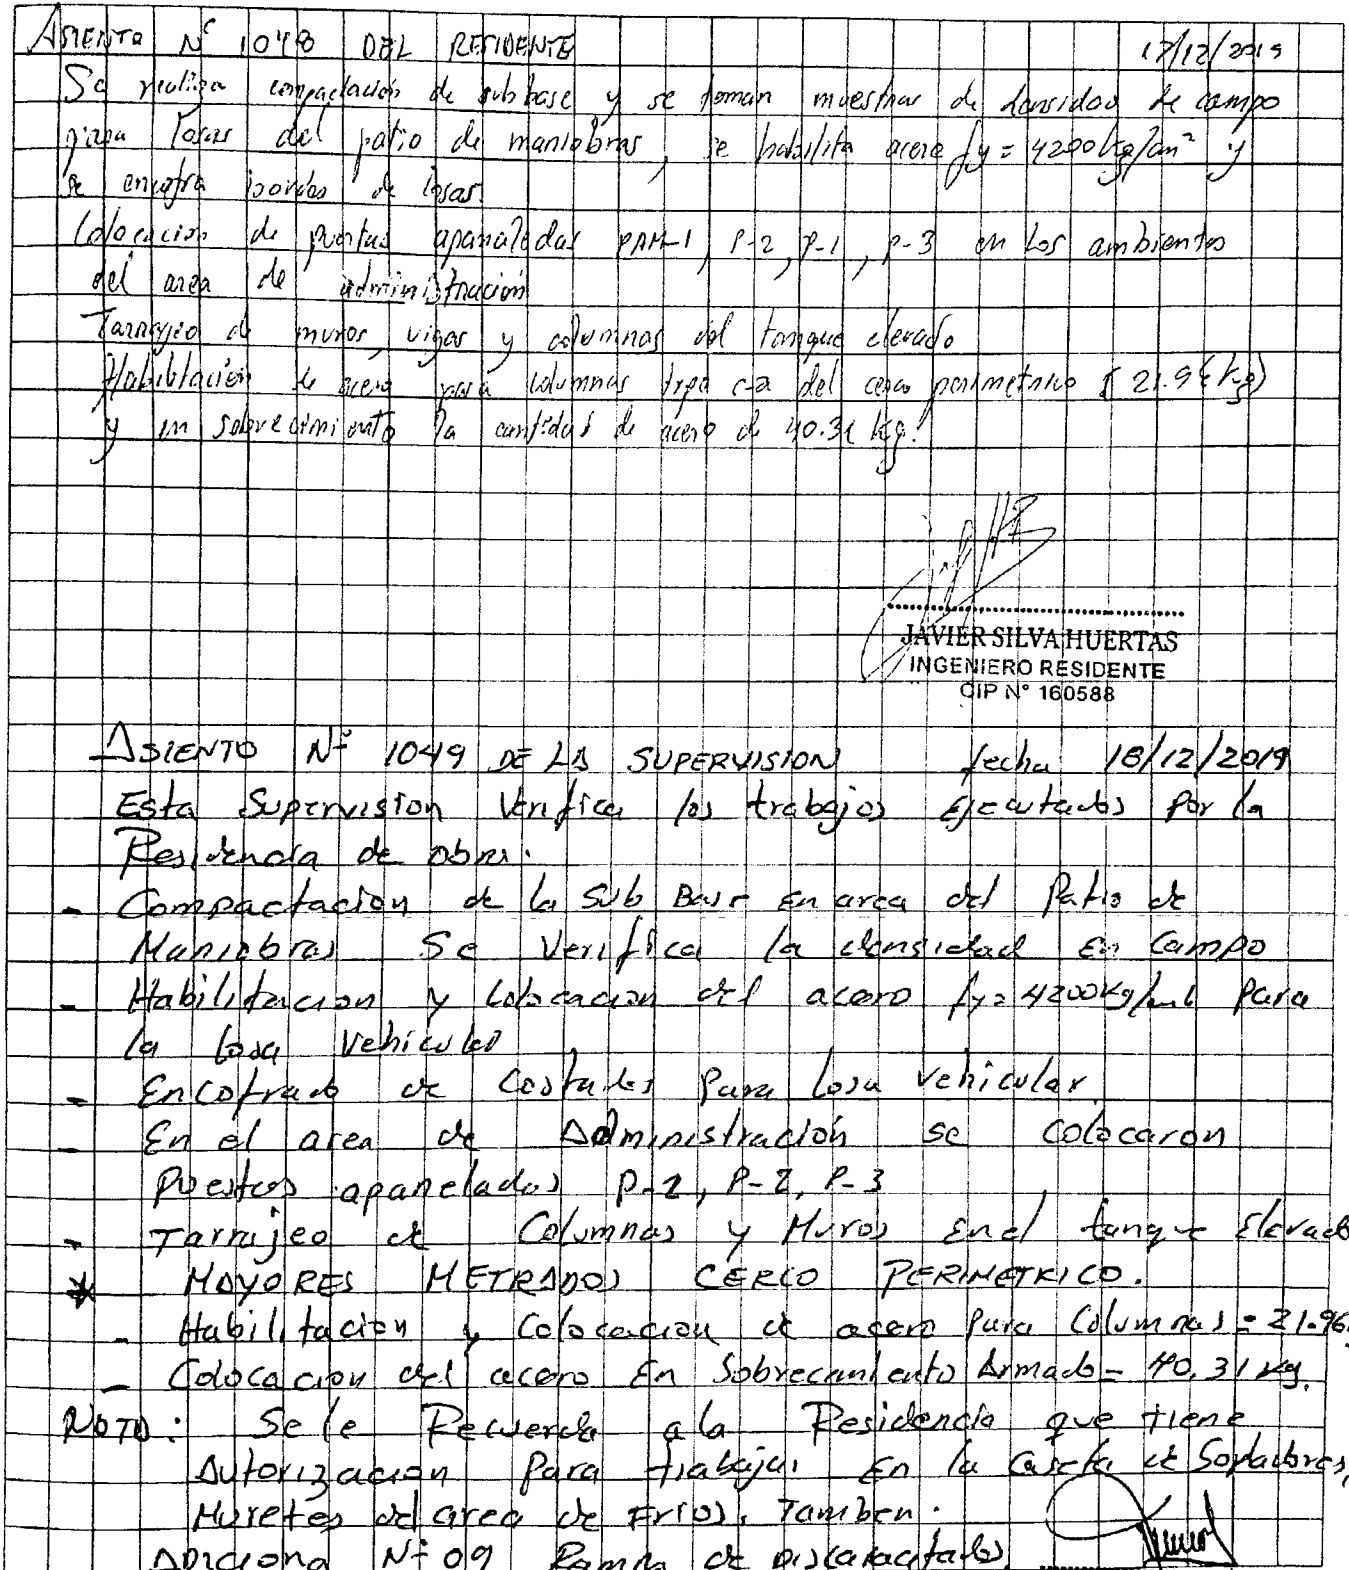 ASIENTO N° 1048 DEL RESIDENTE 17/12/2019
Se realiza compactación de sub base y se toman muestras de densidad de campo
para losas del patio de maniobras, se habilita acero fy = 4200 kg/cm² y
se encofra bordes de losas.
Colocacion de puertas apaneladas PAM-1, P-2, P-1, P-3 en los ambientes
del area de administración
Tarrajeo de muros, vigas y columnas del tanque elevado
Habilitación de acero para columnas tipo c-2 del cerco perimetrico (21.96 kg)
y en sobrecimiento la cantidad de acero de 40.31 kg.
JAVIER SILVA HUERTAS
INGENIERO RESIDENTE
CIP N° 160588
ASIENTO N° 1049 DE LA SUPERVISION fecha 18/12/2019
Esta Supervision Verifica los trabajos Ejecutados Por la
Residencia de obra.
- Compactacion de la Sub Base en area del Patio de
Maniobras Se Verifica la densidad en Campo
- Habilitacion y Colocacion del acero fy= 4200kg/cm2 Para
la losa Vehicular
- Encofrado de Costados Para losa vehicular.
- En el area de Administración se colocaron
Puertas apanelados P-2, P-2, P-3
- Tarrajeo de Columnas y Muros En el tanque Elevado
* MAYORES METRADOS CERCO PERIMETRICO.
- Habilitacion y Colocacion de acero Para Columnas = 21.96
- Colocacion del acero En Sobrecimiento Armado = 40.31 kg.
NOTA: Se le Recuerda a la Residencia que tiene
Autorizacion Para trabajar En la Caseta de Sopladores,
Muretes del area de Frios. Tamben.
Adiciona N° 09 Rampa de Discapacitados